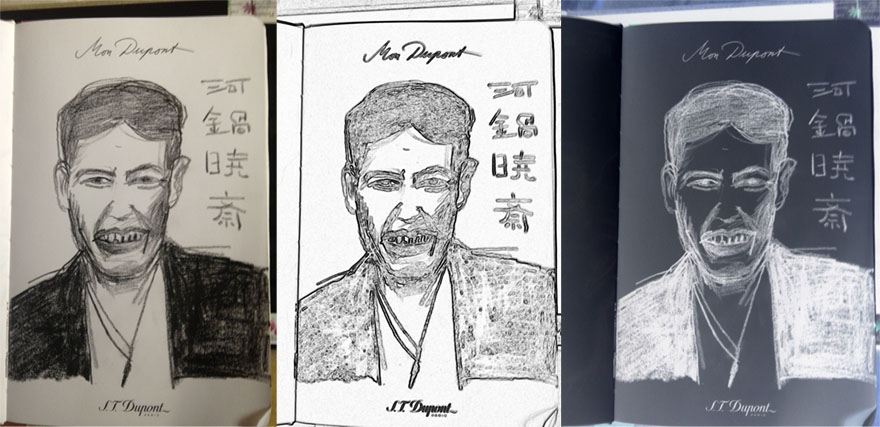 Mon Dupont
河
鍋
暁
斎
S.T. Dupont
PARIS
Mon Dupont
河
鍋
暁
斎
S.T. Dupont
PARIS
Mon Dupont
河
鍋
暁
斎
S.T. Dupont
PARIS